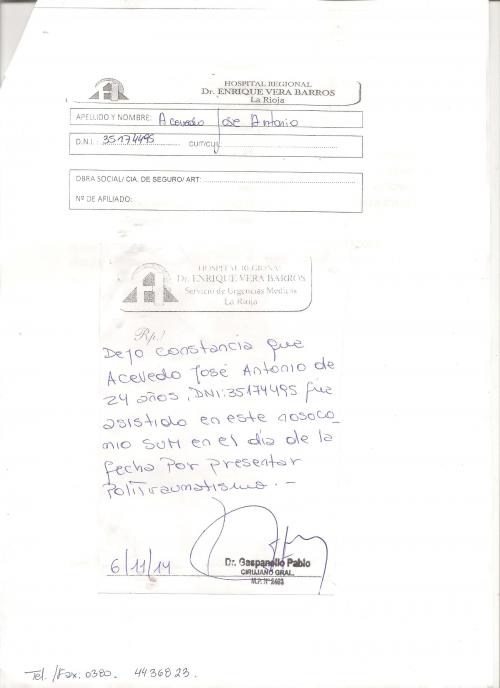 HOSPITAL REGIONAL
Dr. ENRIQUE VERA BARROS
La Rioja
APELLIDO Y NOMBRE: Acevedo José Antonio
D.N.I.: 35174495 CUIT/CUIL
OBRA SOCIAL/ CIA. DE SEGURO/ ART:
Nº DE AFILIADO:
HOSPITAL REGIONAL
Dr. ENRIQUE VERA BARROS
Servicio de Urgencias Medicas
La Rioja
Rp./
Dejo constancia que
Acevedo José Antonio de
24 años, DNI:35174495 fue
asistido en este nosoco_
mio SUM en el día de la
fecha Por presentar
Politraumatismo.-
6/11/14
Dr. Gaspanello Pablo
CIRUJANO GRAL.
M.P. Nº 2403
Tel./Fax: 0380. 4436823.